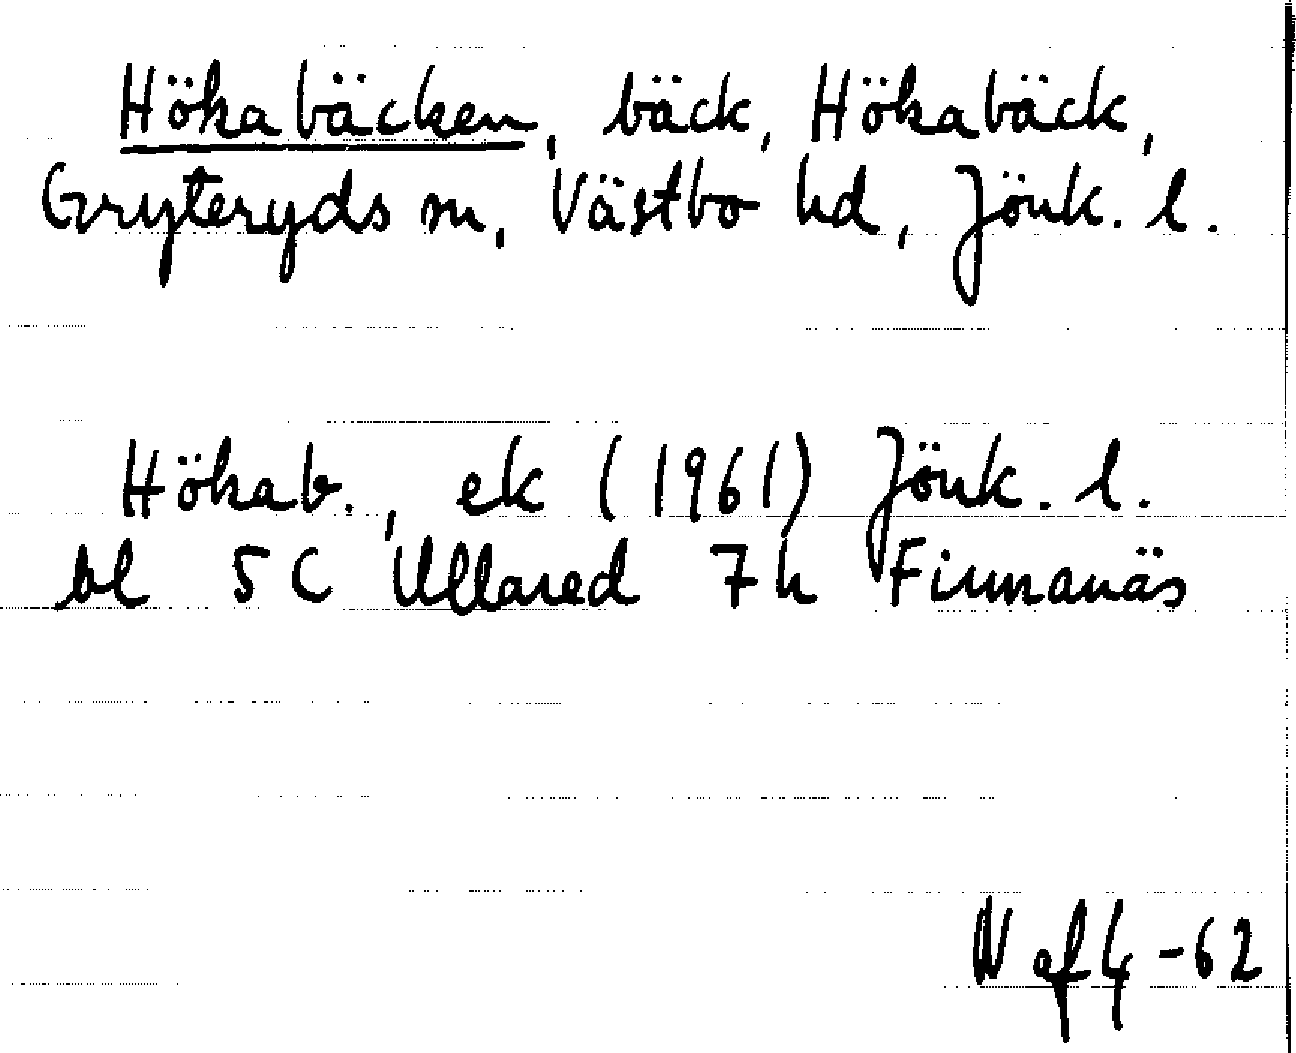 Hökabäcken, bäck, Hökabäck,
Gryteryds sn, Västbo hd, Jönk. l.
Hökab., ek (1961) Jönk. l.
bl 5C Ullared 7h Finnanäs
-62